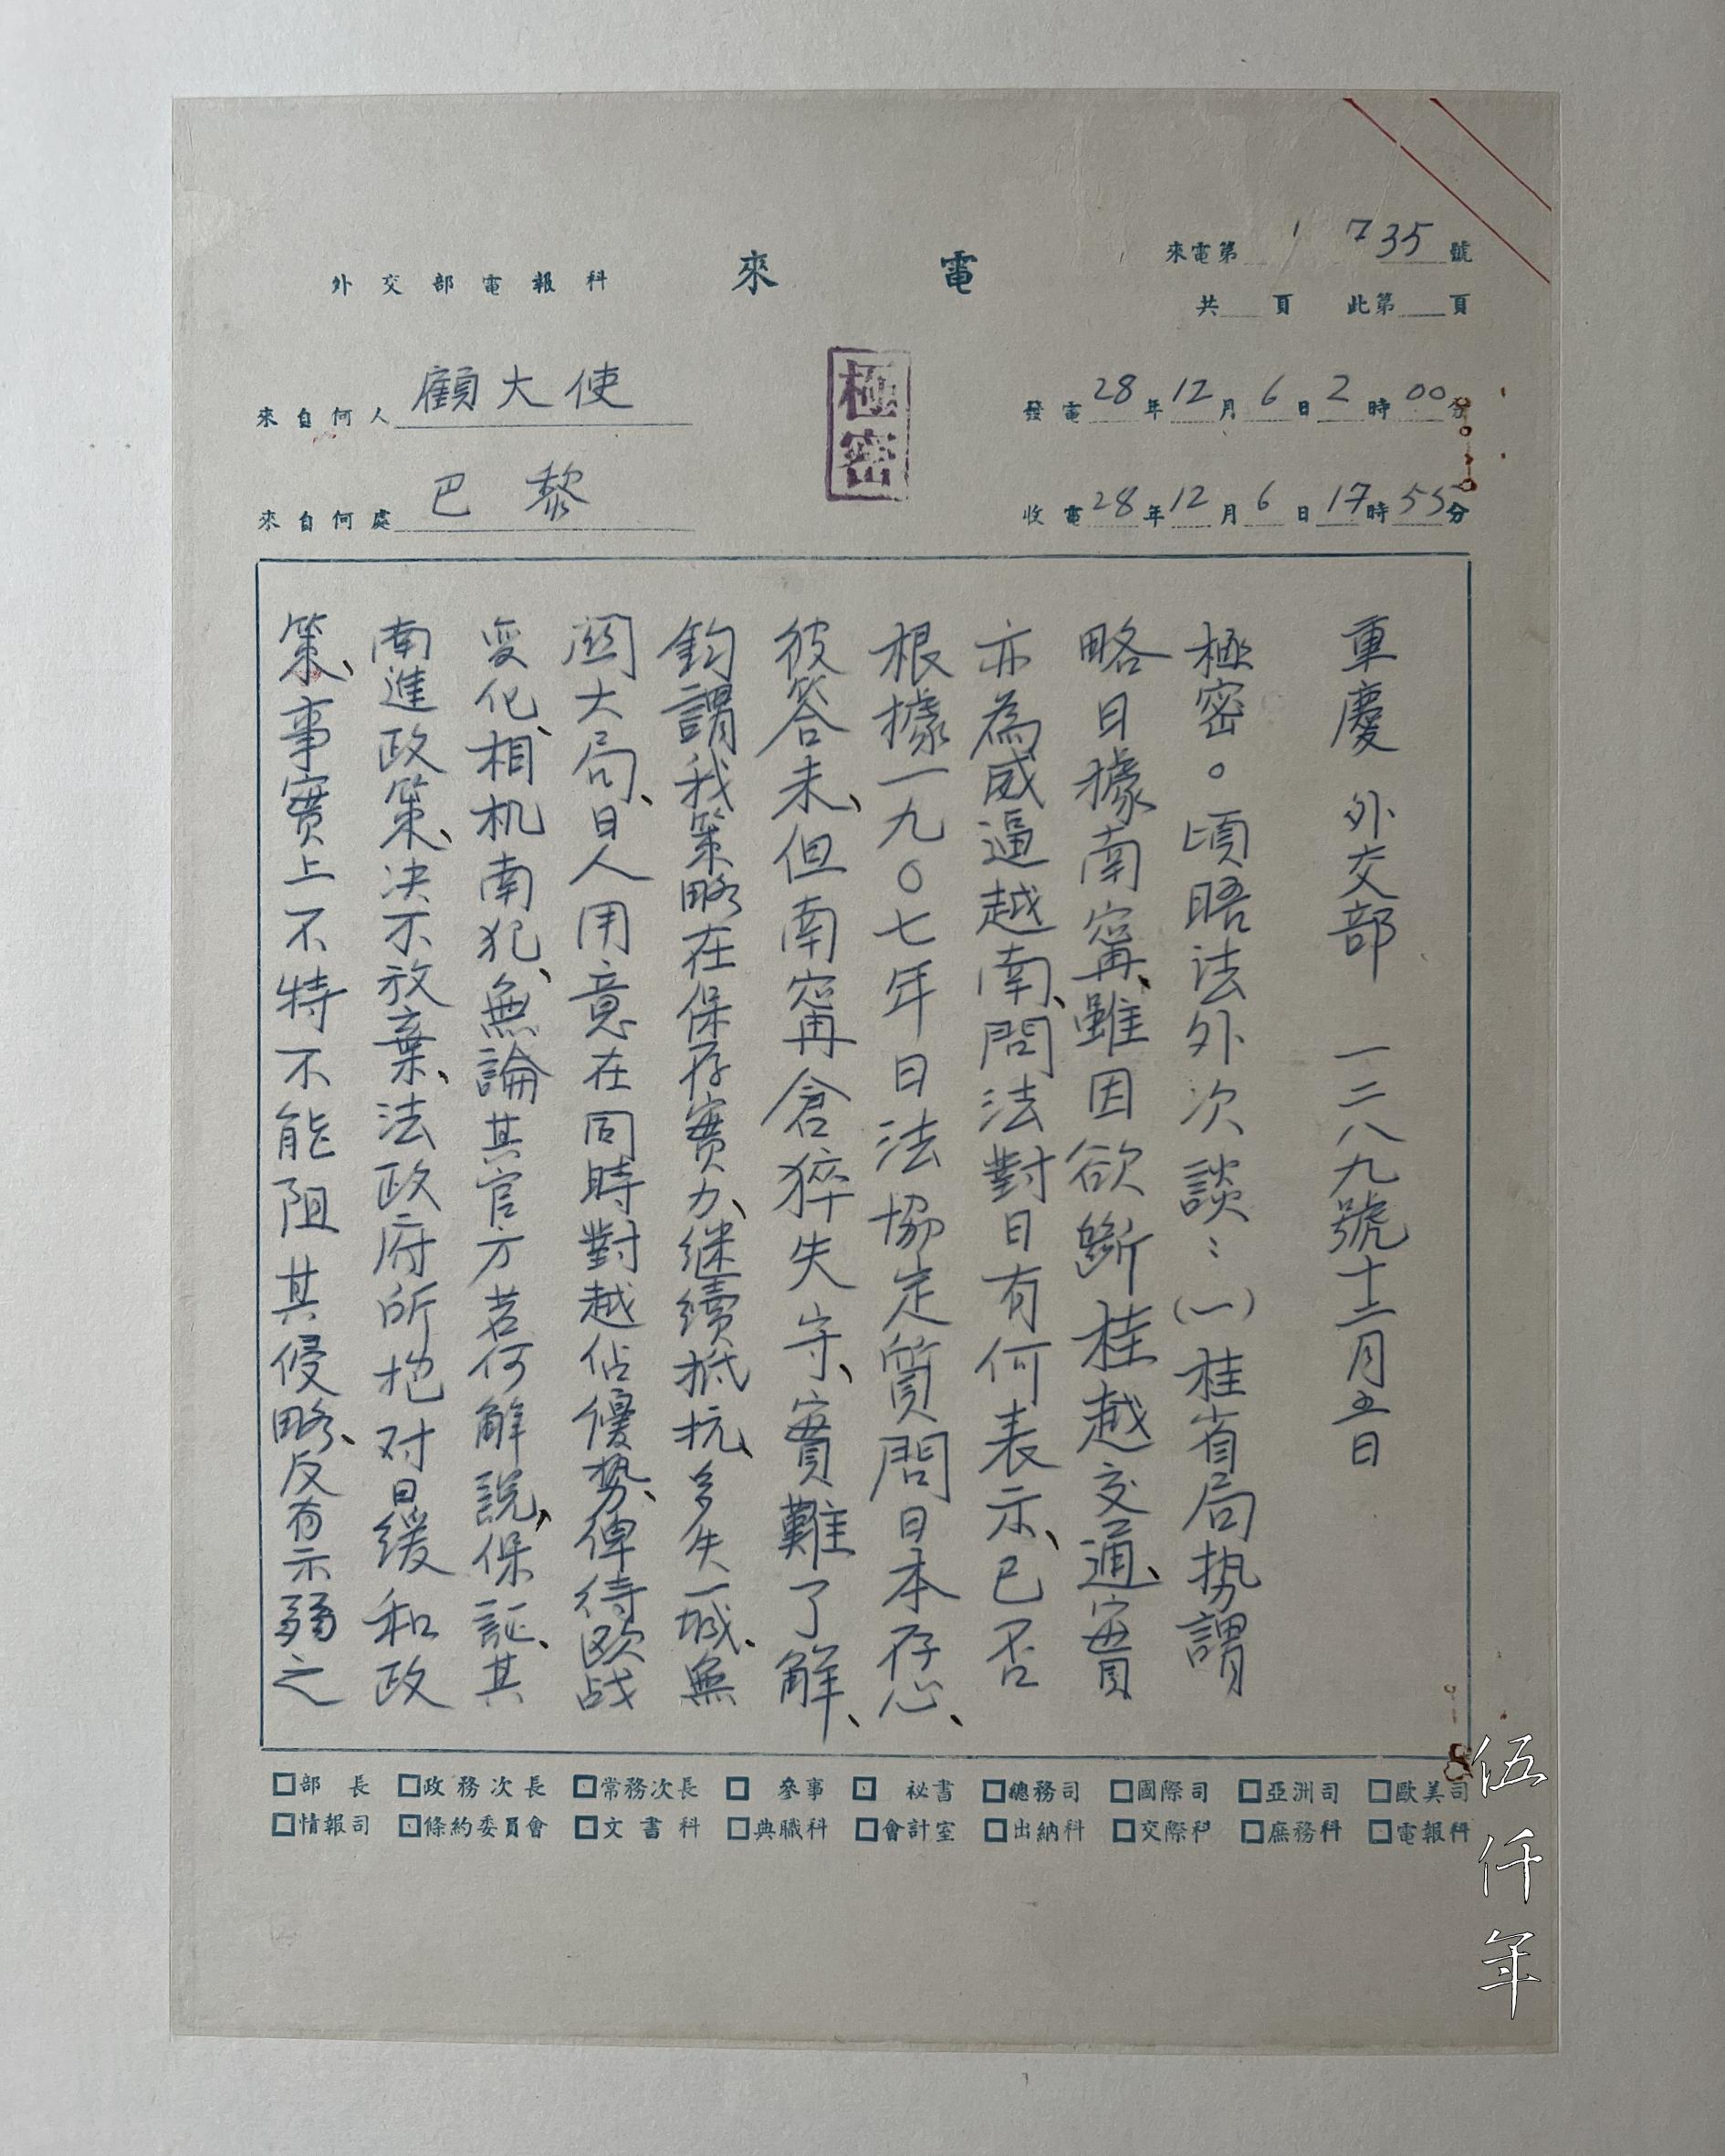 外交部電報科
來電
來電第1735號
共 頁 此第 頁
來自何人 顧大使
來自何處 巴黎
極密
發電28年12月6日2時00分
收電28年12月6日17時55分
重慶 外交部 一二八九號十二月五日
極密。頃晤法外次談：(一)桂省局势謂
略日據南甯、雖因欲斷桂越交通、實
亦為威逼越南、問法對日有何表示、已否
根據一九〇七年日法協定質問日本存心、
彼答未、但南甯倉猝失守、實難了解、
鈞謂我策略在保存實力、继續抵抗、多失一城、無
関大局、日人用意在同時對越佔優势、俾待欧战
变化、相机南犯、無論其官方若何解説、保証、其
南進政策、决不放棄、法政府所抱对日缓和政
策、事實上不特不能阻其侵略、反有示弱之
□部長 □政務次長 □常務次長 □參事 □祕書 □總務司 □國際司 □亞洲司 □歐美司
□情報司 □條約委員會 □文書科 □典職科 □會計室 □出納科 □交際科 □庶務科 □電報科
伍仟年